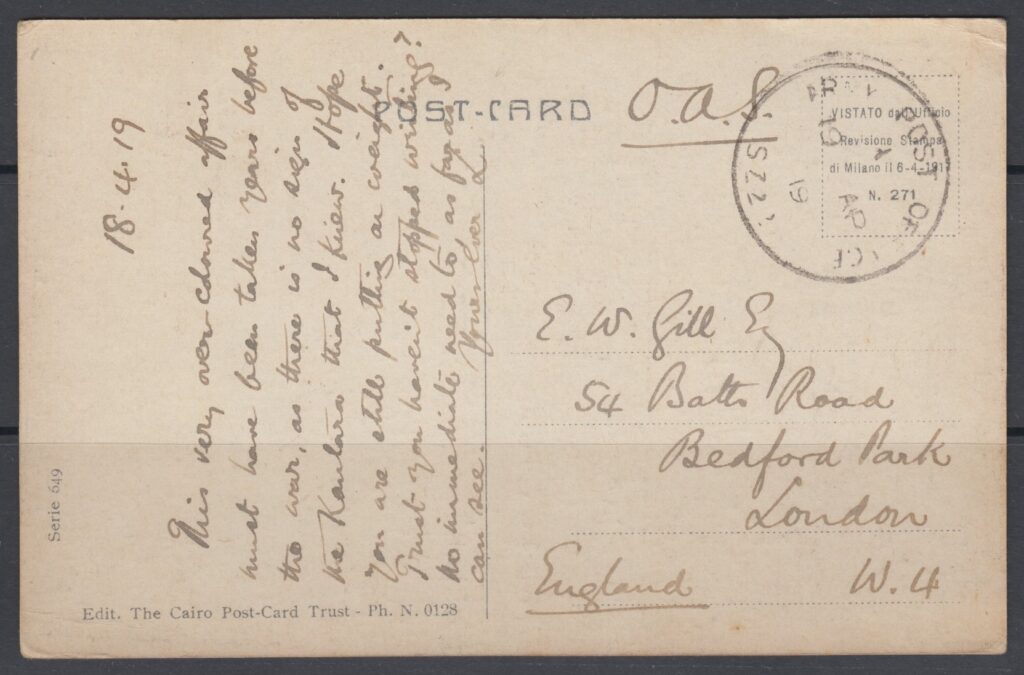 POST-CARD
O.A.S.
VISTATO dall'Ufficio
Revisione Stampa
di Milano il 6-4-1917
N. 271
POST OF
SZ2
AP
19
18-4-19
This very over-coloured affair
must have been taken years before
the war, as there is no sign of
the Kantara that I knew. Hope
you are still putting on weight.
Trust you haven't stopped writing?
No immediate need to as far as I
can see. Yours Ever
E. W. Gill Esq
54 Batts Road
Bedford Park
London
England W. 4
Serie 649
Edit. The Cairo Post-Card Trust - Ph. N. 0128